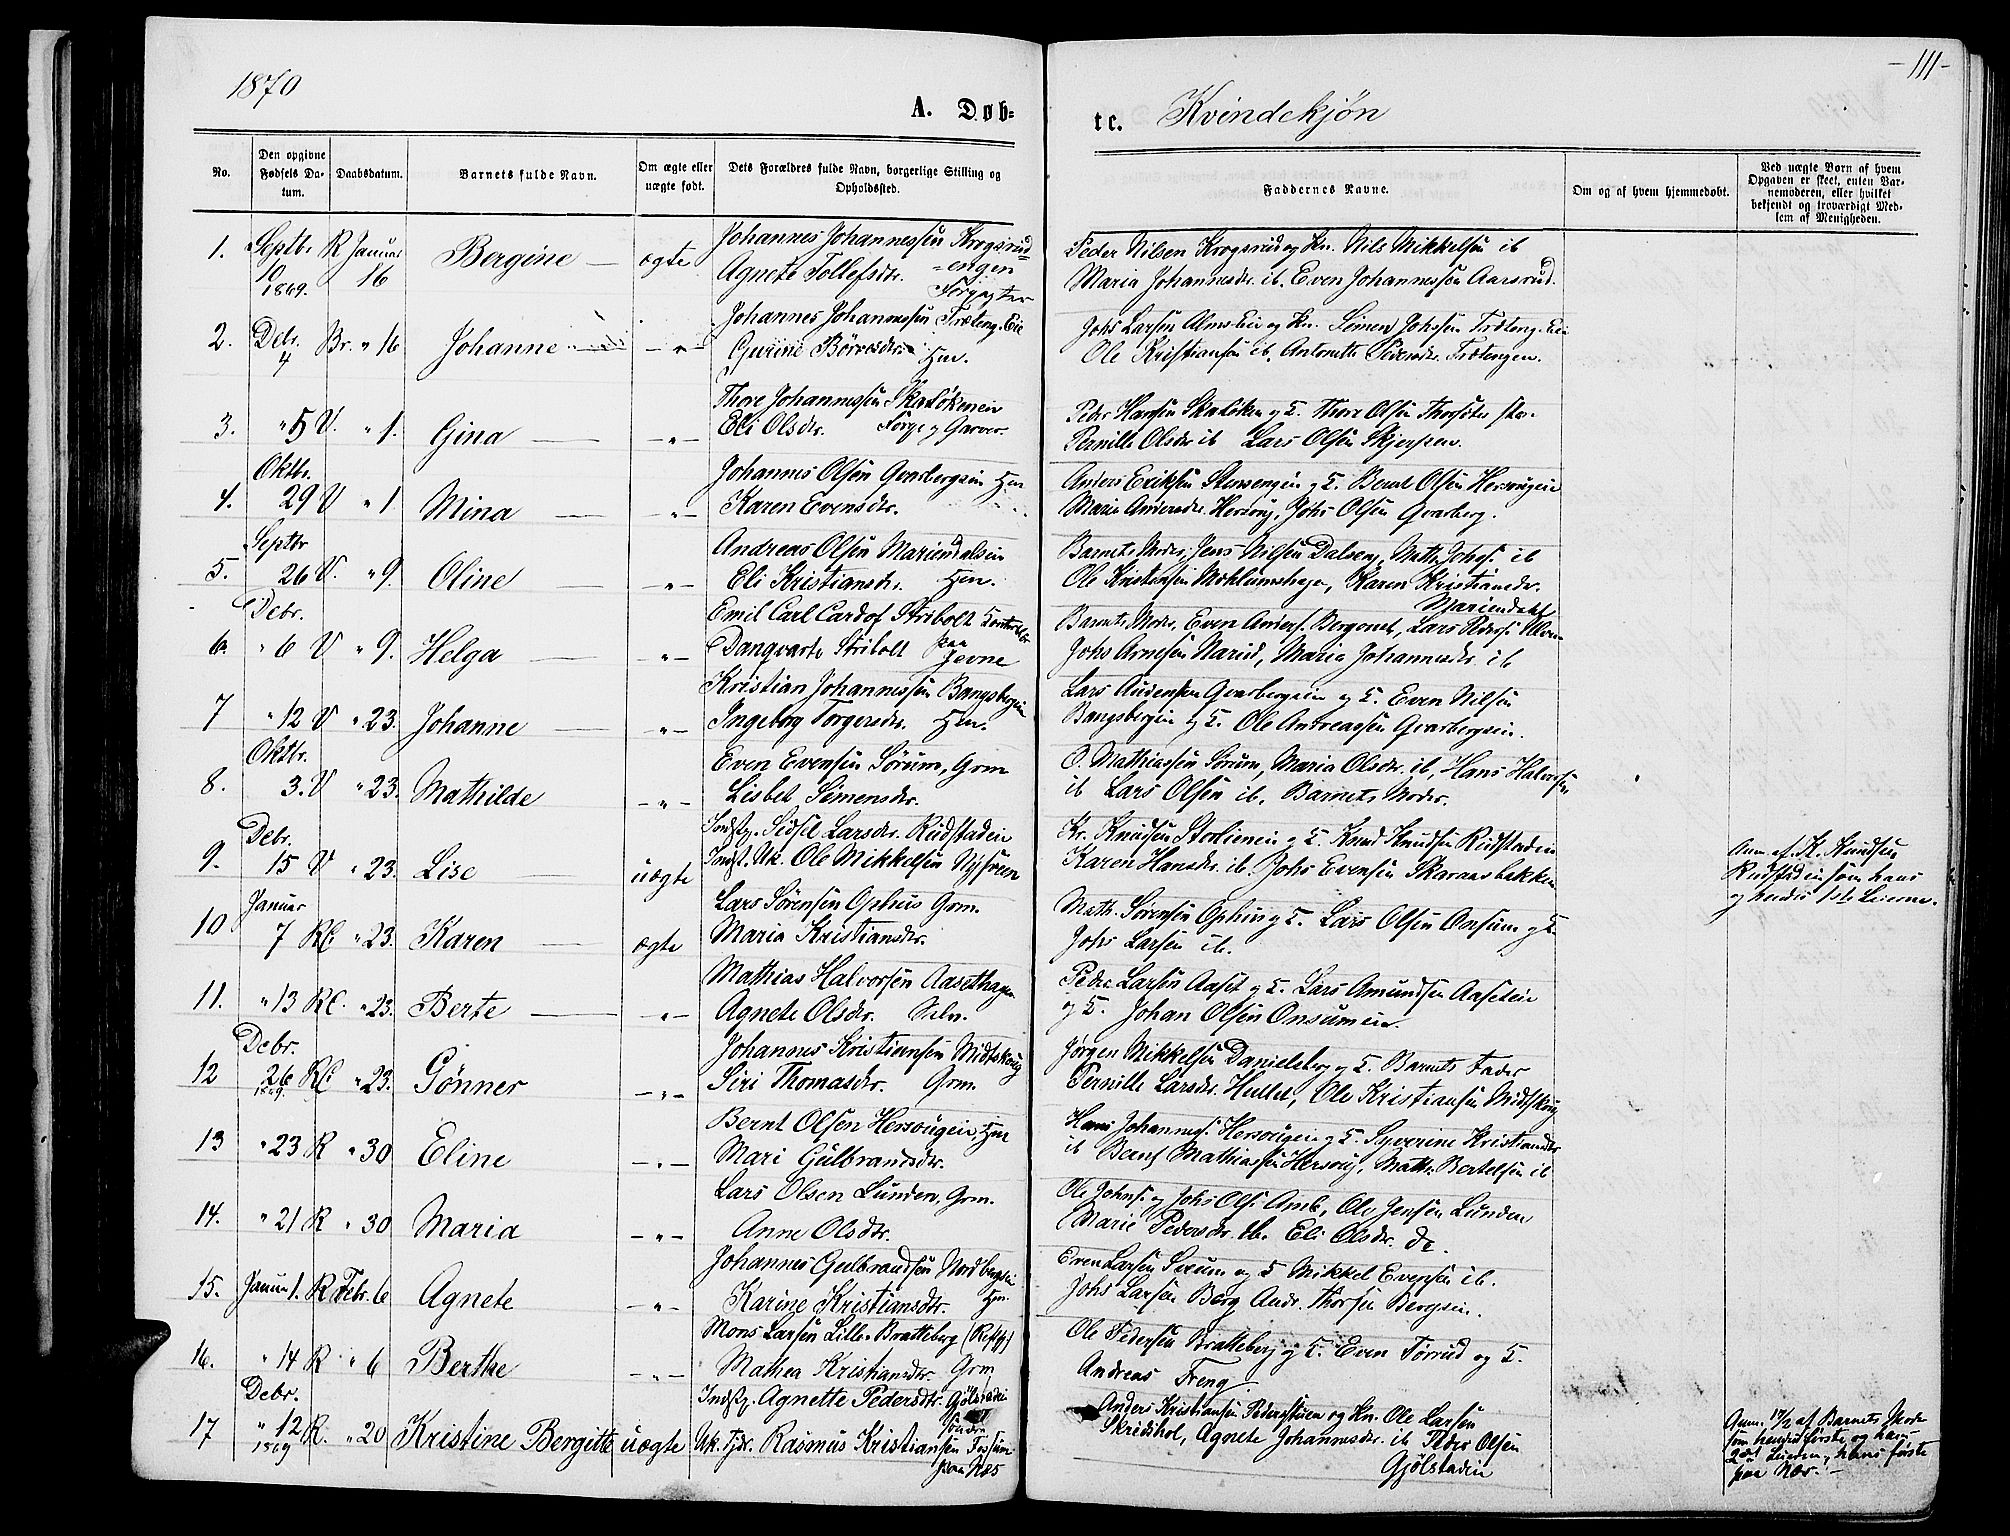 1870
-111-
A. Døb=
te. Kvindekjøn
No.
Den opgivne Fødsels Da-
tum.
Daabsdatum.
Barnets fulde Navn.
Om ægte eller
uægte født.
Dets Forældres fulde Navn, borgerlige Stilling og
Opholdssted.
Faddernes Navne.
Om og af hvem hjemmedøbt.
Ved uægte Børn af hvem
Opgaven er skeet, enten Bar-
nemoderen, eller hvilket
bekjendt og troværdigt Med-
lem af Menigheden.
1. Septbr. 10 1869. R Januar 16 Bergine ægte
Johannes Johannessen Krogsrud=
=engen
Agnete Tollefsdtr.
Peder Nilsen Krogsrud og Kn. Nils Mikkelsen ib
Maria Johannesdr. ib. Even Johannessen Aarsrud.
2. Debr. 4 Br. " 16 Johanne - " -
Johannes Johannessen Træteng. Eie
Gurine Børresdr. Hm.
Johs Larsen Alms Eie og Kn. Simen Johssen Træteng. Eie
Ole Kristiansen ib. Antonette Pedersdr. Trætengen.
3. " 5 V. " 1. Gina - " -
Thore Johannessen Skaløkeneie
Eli Olsdtr. Forp. og Garver.
Peder Hansen Skaløken og T. Thore Olsen
Pernille Olsdr ib Lars Olsen
4. Oktbr. 29 V " 1. Mina - " -
Johannes Olsen Qvarbergeie Hm
Karen Evensdtr.
Anders Eriksen Stensengen og T. Bernt Olsen Hersougeie
Maria Andersdr. Hersoug, Johs Olsen Qvarberg.
5. Septbr 26 V. " 9. Oline - " -
Andreas Olsen Mariendalseie
Eli Kristiansdr. Hm.
Barnets Moder, Jens Nilsen Dalseng, Math. Johs. ib
Ole Kristiansen, Karen Kristiansdr.
Mariendal
6. Debr. " 6 V " 9. Helga - " -
Emil Carl Cardof Stribolt
Dangvarte Stribolt paa Jevne
Barnets Moder, Even Anders. Bergonet, Lars Peders.
Johs Arnesen Narud, Maria Johannesdr ib
7 " 12 V " 23. Johanne - " -
Kristian Johannessen Bangsbergeie
Ingeborg Torgersdr. Hm.
Lars Audensen Qvarbergeie og T. Even Nilsen
Bangsbergeie og T. Ole Andreassen Qvarbergeie.
8. Oktbr. 3. V " 23. Mathilde - " -
Even Evensen Sørum, Grm
Lisbet Simensdr.
O. Mathiassen Sørum, Maria Olsdr. ib, Hans Halvorsen
ib Lars Olsen ib. Barnets Moder.
9. Debr. 15 V " 23. Lise uægte
Indst. Sidsel Larsdr. Rudstadeie
Indst. Uk. Ole Mikkelsen Nysveen
Kr. Knudsen Storlieneie og T. Knud Knudsen Rudstadeie
Karen Hansdr. ib. Johs Evensen Skaraasbakken
Anm. af K. Knudsen
Rudstadeie som hans
og hendes 1ste Leierm.
10 Januar 7 RC. " 23. Karen ægte
Lars Sørensen Ophus Grm.
Maria Kristiansdr.
Math. Sørensen Ophus og T. Lars Olsen Onsum og T.
Johs Larsen ib.
11. " 13 RC. " 23. Berte - " -
Mathias Halvorsen Aasethagen
Agnete Olsdr. Selv.
Peder Larsen Aaset og T. Lars Amundsen Aaseteie
og T. Johan Olsen Onsumeie.
12 Debr. 26 1869 RC " 23. Gønner - " -
Johannes Kristiansen Midtskoug
Siri Thomasdr. Grm.
Jørgen Mikkelsen Danielsberg og T. Barnets Fader
Pernille Larsdr. Hullet, Ole Kristiansen Midtskoug
13 " 23 R " 30 Eline - " -
Bernt Olsen Hersougeie, Hm
Mari Gulbrandsdr.
Hans Johanness. Hersougeie og T. Syverine Kristiansdr
ib Bernt Mathiassen Hersoug, Math. Bertelsen ib
14. " 21 R " 30 Maria - " -
Lars Olsen Lunden, Grm.
Anne Olsdtr.
Ole Johns. og Johs Ols. Amb, Ole Jensen Lunden
Marie Pedersdr. ib. Eli Olsdr. do.
15. Januar 1. R Febr. 6 Agnete - " -
Johannes Gulbrandsen Nordbergeie
Karine Kristiansdtr. Hm.
Even Larsen Sørum og T Mikkel Evensen ib.
Johs Larsen Berg Andr. Thorsen Bergseie.
16. " 14 R " 6 Berthe - " -
Mons Larsen Lille-Bratteberg
Mathea Kristiansdr. Grm
Ole Pedersen Bratteberg og T. Even Torrud og T.
Andreas Freng
17 Debr. " 12 1869 R. " 20 Kristine Bergitte uægte
Indst. Agnette Pedersdtr. Gjølstadeie
Uk. Tjdr. Rasmus Kristiansen Fossum
søndre
paa Næs
Anders Kristiansen Pederstuen og Kn. Ole Larsen
Skridshol, Agnete Johannesdr. ib Peder Olsen
Gjølstadeie
Anm. 17/2 af Barnets Moder
som hendes første og hans
2det Leierm. hans første
paa Næs. -